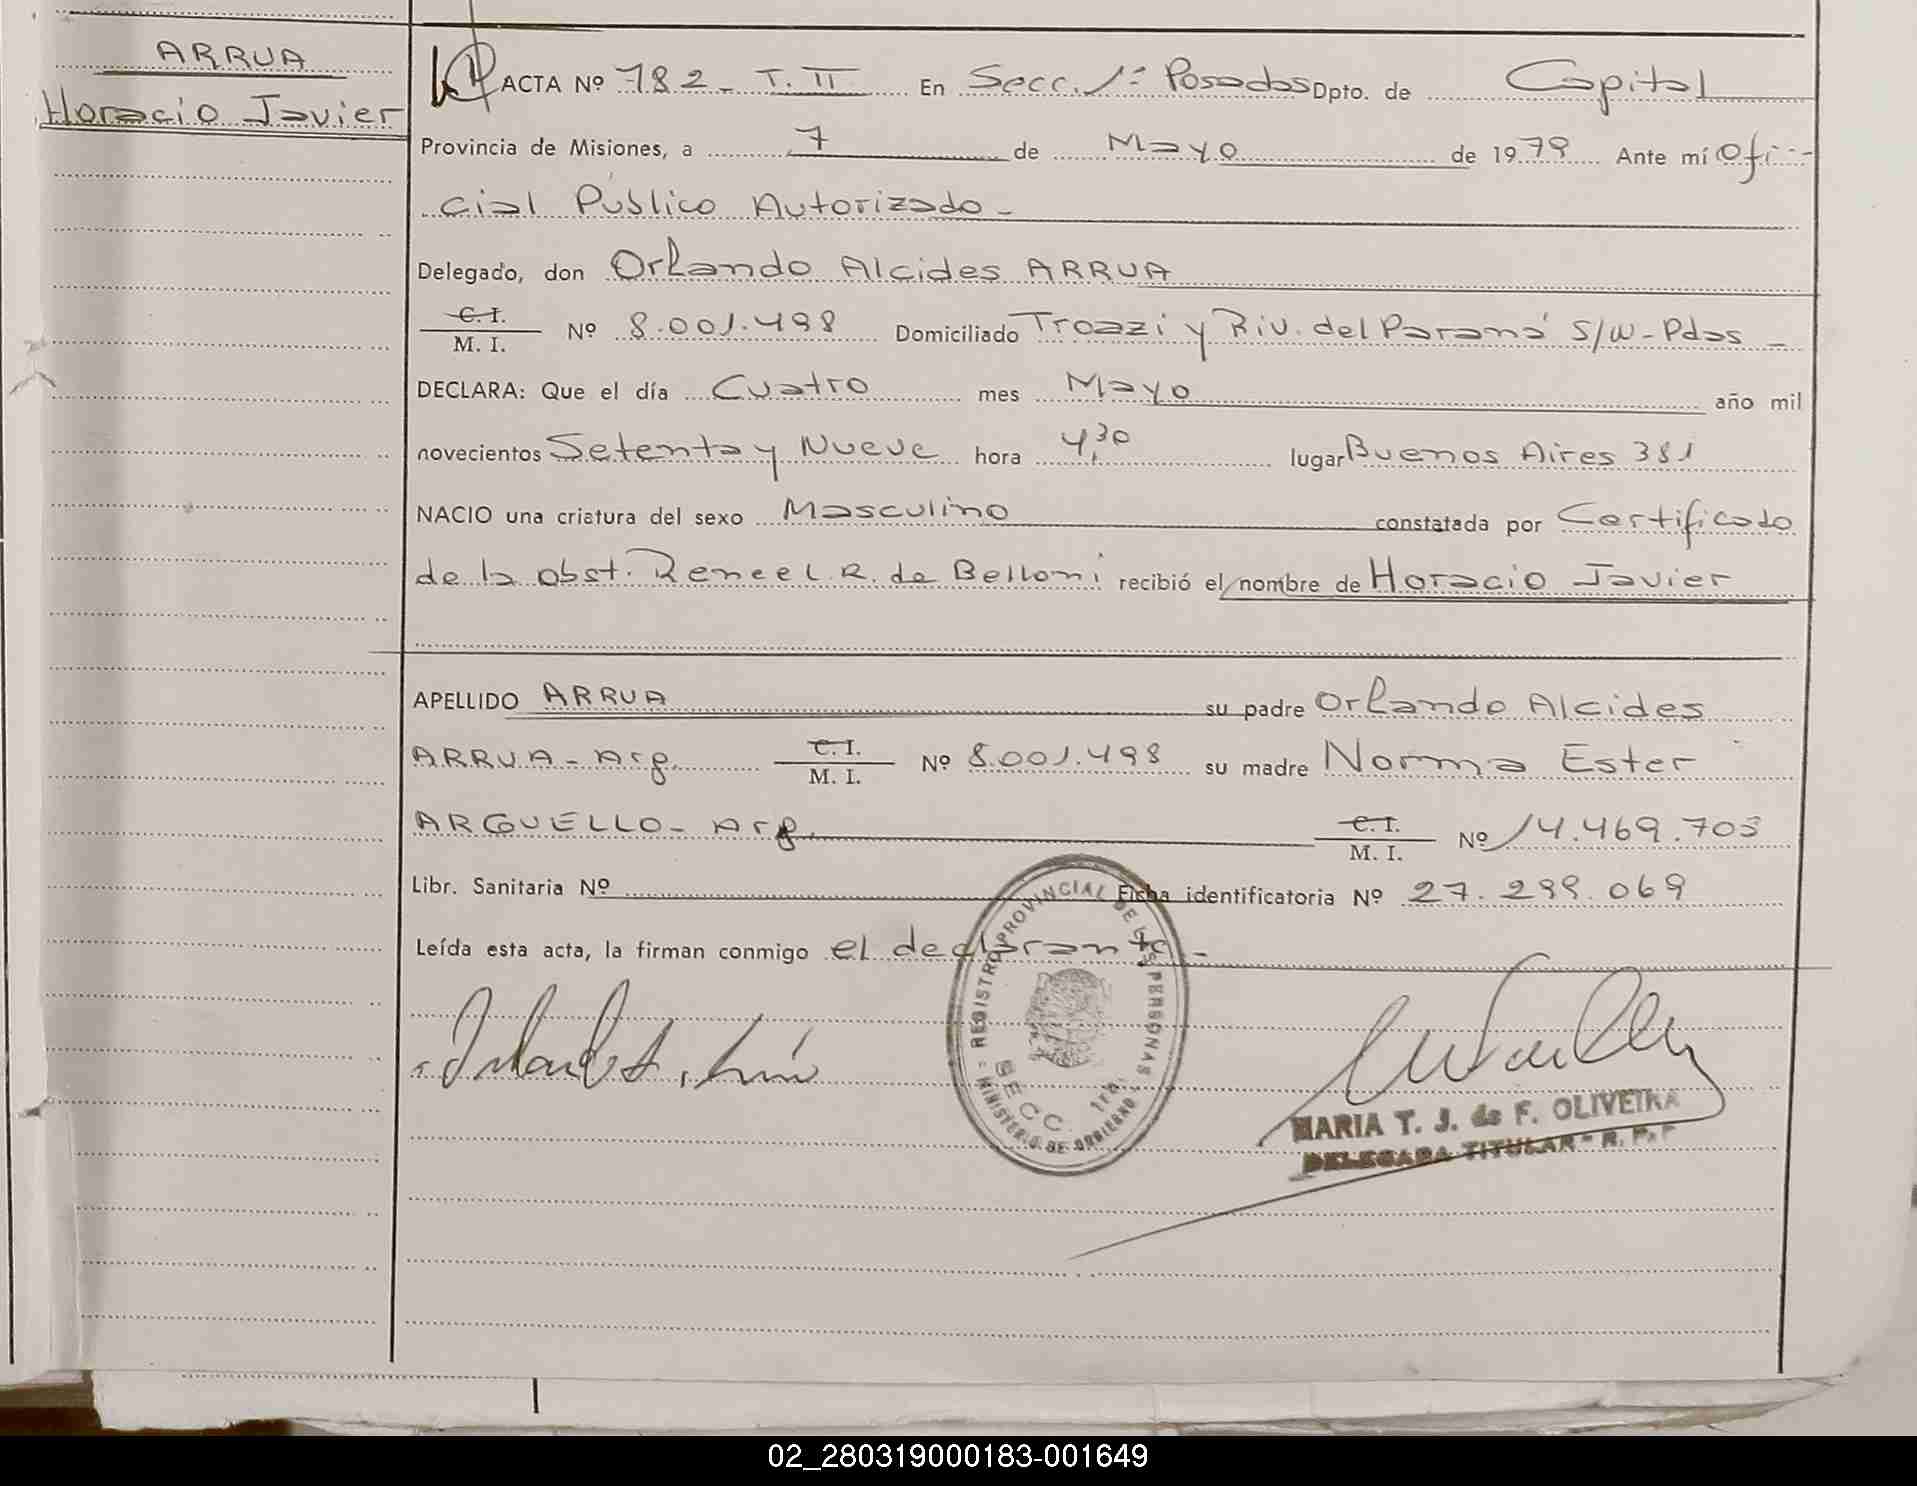 ARRUA
Horacio Javier
ACTA Nº 782 - T. II En Secc. 1ª Posadas Dpto. de Capital
Provincia de Misiones, a 7 de Mayo de 1979 Ante mí Ofi-
cial Público Autorizado -
Delegado, don Orlando Alcides ARRUA
C. I.
M. I. Nº 8.001.498 Domiciliado Troazzi y Riv. del Paraná S/N - Pdas -
DECLARA: Que el día Cuatro mes Mayo año mil
novecientos Setenta y Nueve hora 4,30 lugar Buenos Aires 381
NACIO una criatura del sexo Masculino constatada por Certificado
de la obst. Renee L. R. de Belloni recibió el nombre de Horacio Javier
APELLIDO ARRUA su padre Orlando Alcides
ARRUA - Arg. C. I. M. I. Nº 8.001.498 su madre Norma Ester
ARGUELLO - Arg. C. I. M. I. Nº 14.469.703
Libr. Sanitaria Nº Ficha identificatoria Nº 27.299.069
Leída esta acta, la firman conmigo el declarante -
REGISTRO PROVINCIAL DE LAS PERSONAS
MINISTERIO DE GOBIERNO
SECC. 1RA.
MARIA T. J. de F. OLIVEIRA
DELEGADA TITULAR - R. P. P
02_280319000183-001649